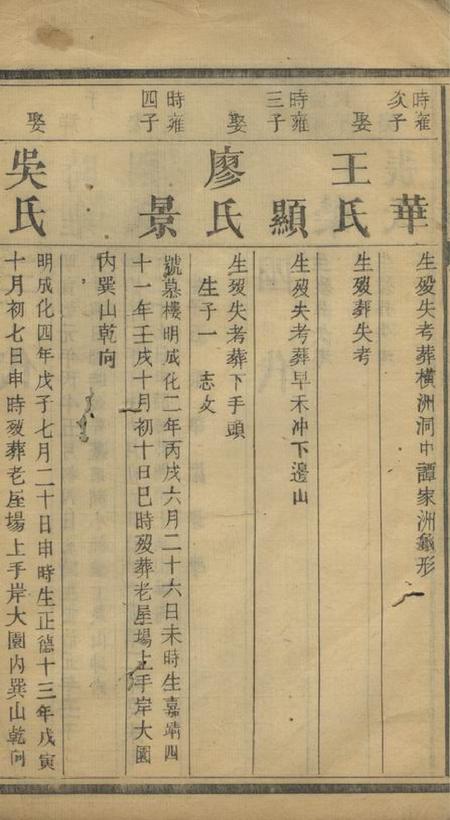 時雍
次子
華
生殁失考葬橫洲洞中譚家洲龜形
娶
王氏
生殁葬失考
時雍
三子
顯
生殁失考葬早禾冲下邊山
娶
廖氏
生殁失考葬下手頭
生子一 志文
時雍
四子
景
號慕樓明成化二年丙戌六月二十六日未時生嘉靖四
十一年壬戌十月初十日巳時殁葬老屋場上手岸大園
內巽山乾向
娶
吳氏
明成化四年戊子七月二十日申時生正德十三年戊寅
十月初七日申時殁葬老屋場上手岸大園內巽山乾向